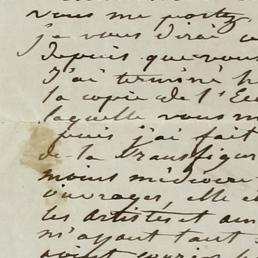 vous me portez
je vous dirai
depuis que vous
J'ai terminé h
la copie de l'Ec
laquelle vous m
puis j'ai fait
de la Transfigur
moins médiocre
ouvrages, elle e
les artistes et am
m'ayant tant